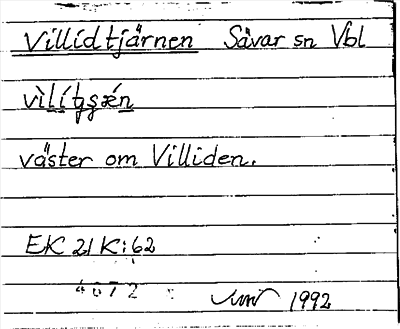 Villidtjärnen Sävar sn Vbl
väster om Villiden.
EK 21 K:62
4072
Juni 1992